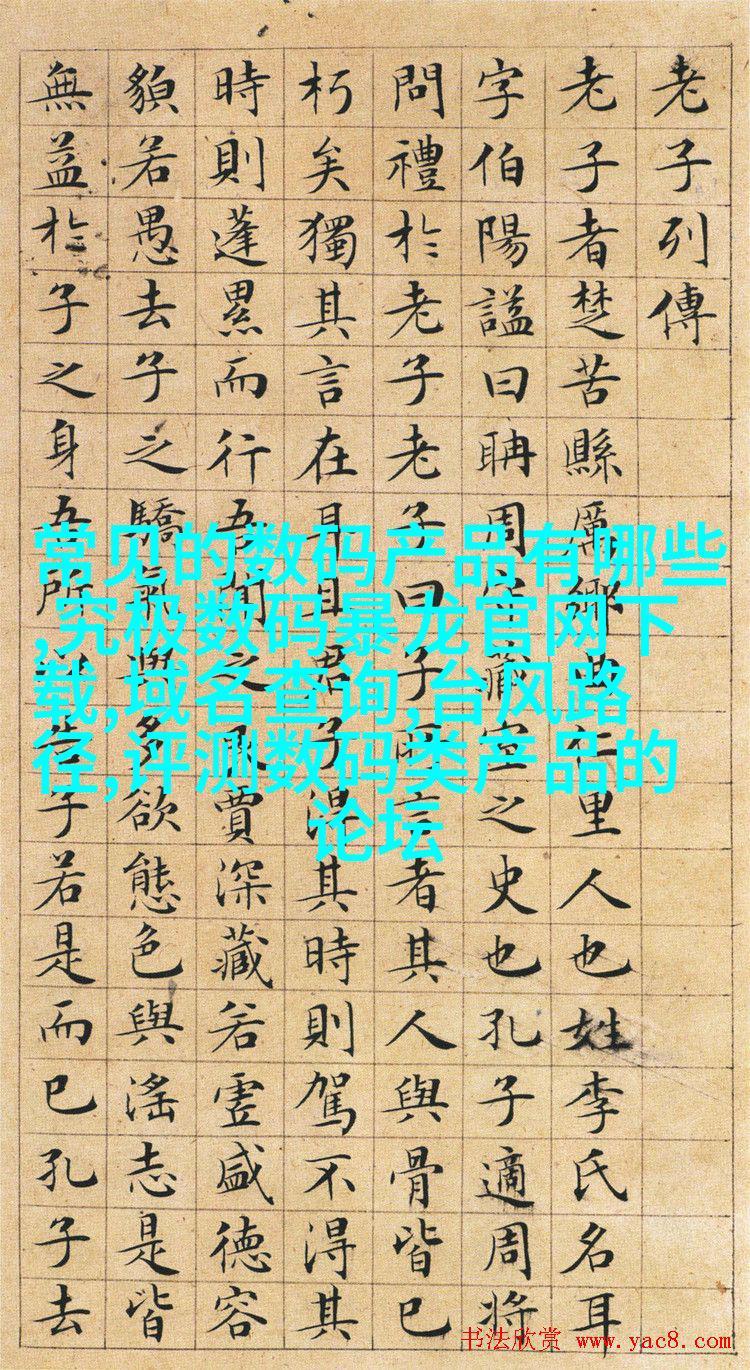 老子列傳
老子者楚苦縣厲鄉曲仁里人也姓李氏名耳
字伯陽謚曰聃周守藏室之史也孔子適周將
問禮於老子老子曰子所言者其人與骨皆已
朽矣獨其言在耳且君子得其時則駕不得其
時則蓬累而行吾聞之良賈深藏若虛盛德容
貌若愚去子之驕氣與多欲態色與淫志是皆
無益於子之身吾所以告子若是而已孔子去
常见的数码产品有哪些
,究极数码暴龙官网下
载,域名查询,台风路
径,评测数码类产品的
论坛
书法欣赏 www.yac8.com